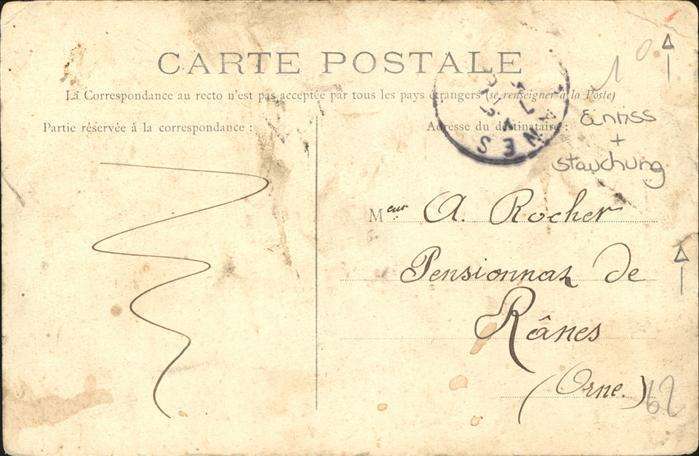 CARTE POSTALE
La Correspondance au recto n'est pas acceptée par tous les pays étrangers (se renseigner à la Poste)
Partie réservée à la correspondance :
Adresse du destinataire :
RANES
10
Einriss
+
Stauchung
Meur A. Rocher
Pensionnat de
Rânes
(Orne.)
62